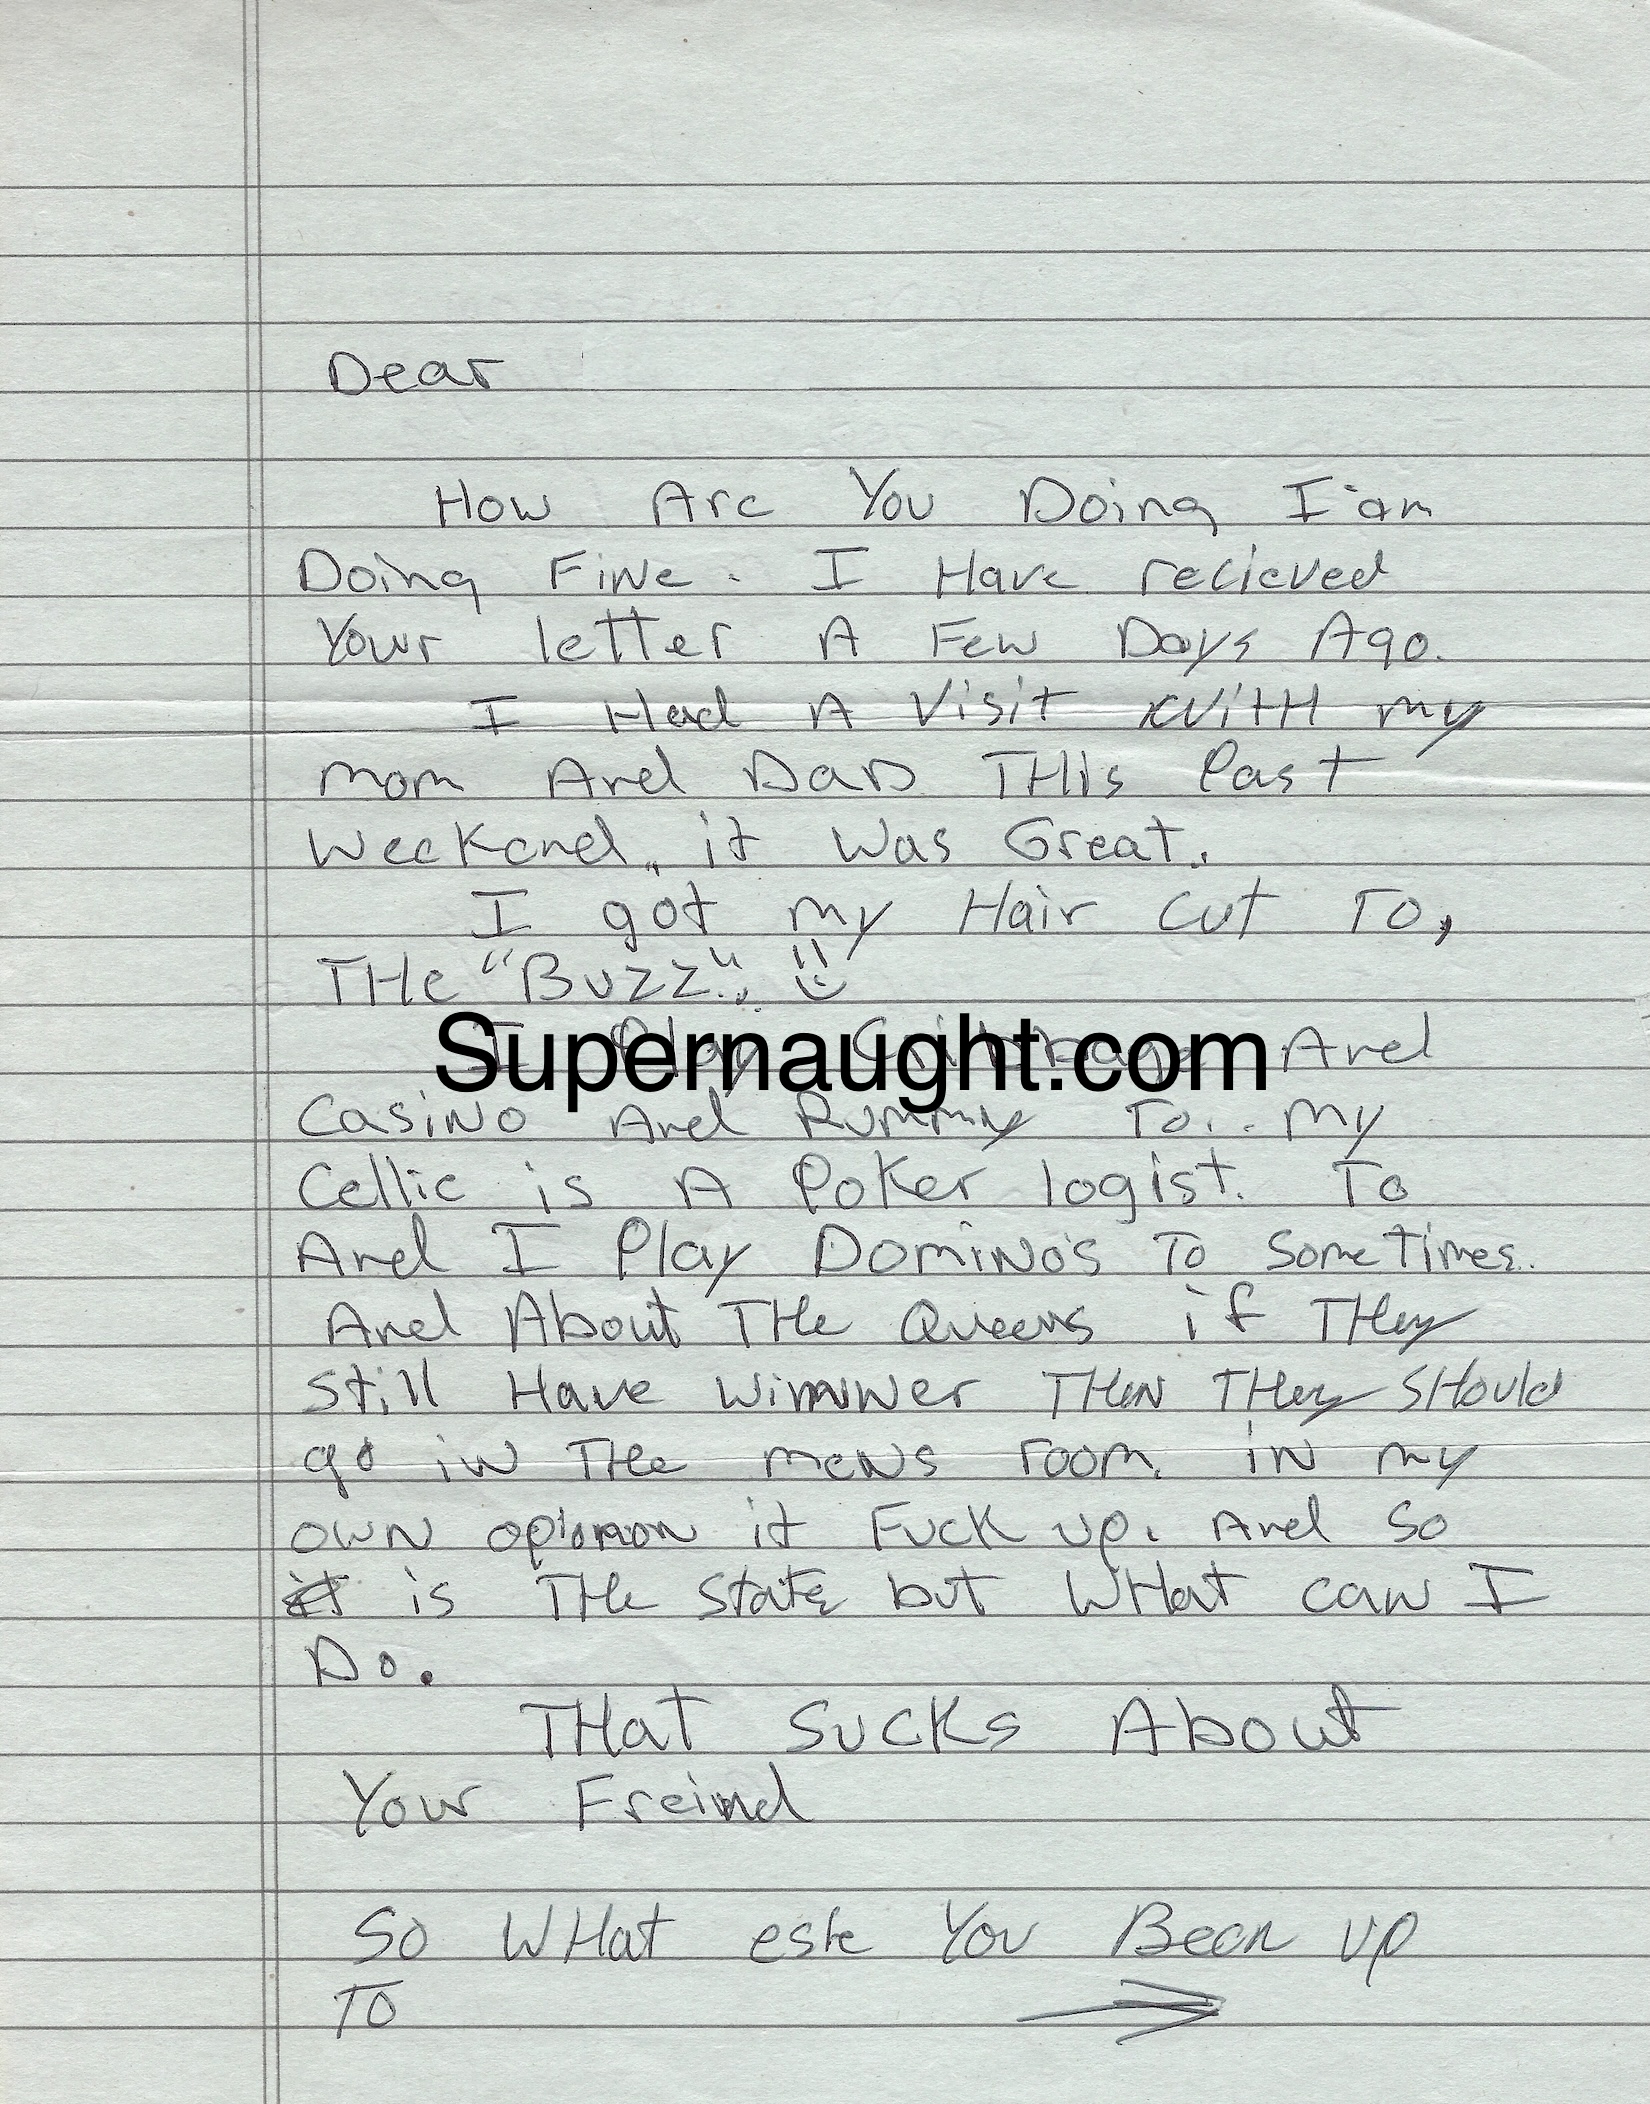 Dear
How Are You Doing I'am
Doing FiNe. I Have recieved
Your letter A Few Days Ago.
I Had A Visit WiTH my
mom And DaD THis Past
Weekend, it Was Great.
I got my Hair Cut To,
THe "BuZZ".
I Play Cribbage And
Supernaught.com
CasiNo And Rummy To.. My
Cellie is A Poker logist. To
And I Play DomiNo's To SomeTimes.
And About THe Queens if THey
Still Have wiNNer THeN THey SHould
go iN THe meNs room. iN my
owN opinion it Fuck up. And So
it is THe State but WHat caN I
Do.
THaT Sucks About
Your Freind
So WHat esle You Been up
TO